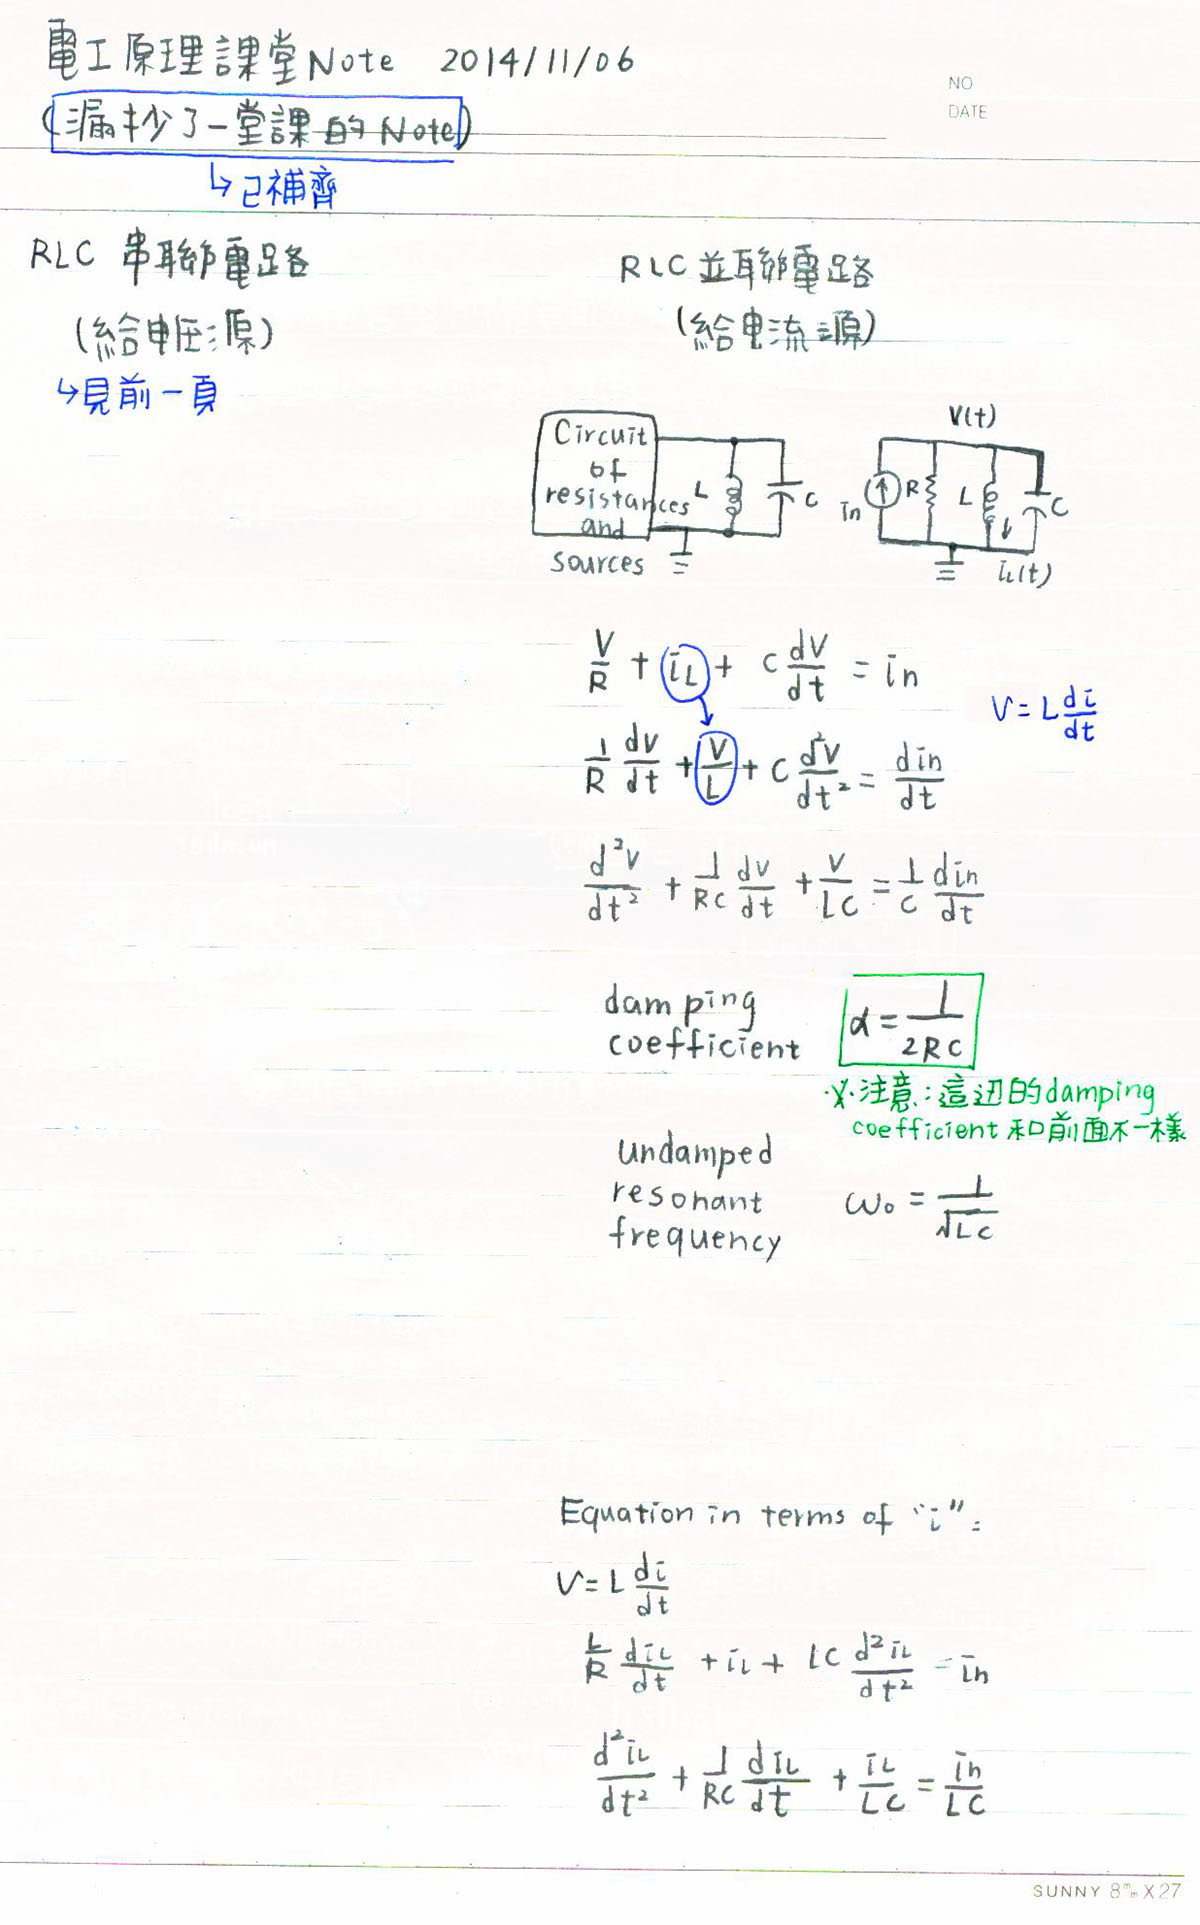 電工原理課堂Note 2014/11/06
NO
DATE
(漏抄了一堂課的Note)
↳已補齊
RLC 串聯電路
(給電圧源)
↳見前一頁
RLC 並聯電路
(給电流源)
Circuit
of
resistances
and
sources
L
C
V(t)
in
R
L
C
iL(t)
V/R + iL + C dV/dt = in
V = L di/dt
1/R dv/dt + V/L + C d²V/dt² = din/dt
d²V/dt² + 1/RC dv/dt + V/LC = 1/C din/dt
damping
coefficient
α = 1/2RC
※注意:這边的damping
coefficient 和前面不一樣
undamped
resonant
frequency
ω₀ = 1/√LC
Equation in terms of "i":
V = L di/dt
L/R diL/dt + iL + LC d²iL/dt² = in
d²iL/dt² + 1/RC diL/dt + iL/LC = in/LC
SUNNY 8mm X 27